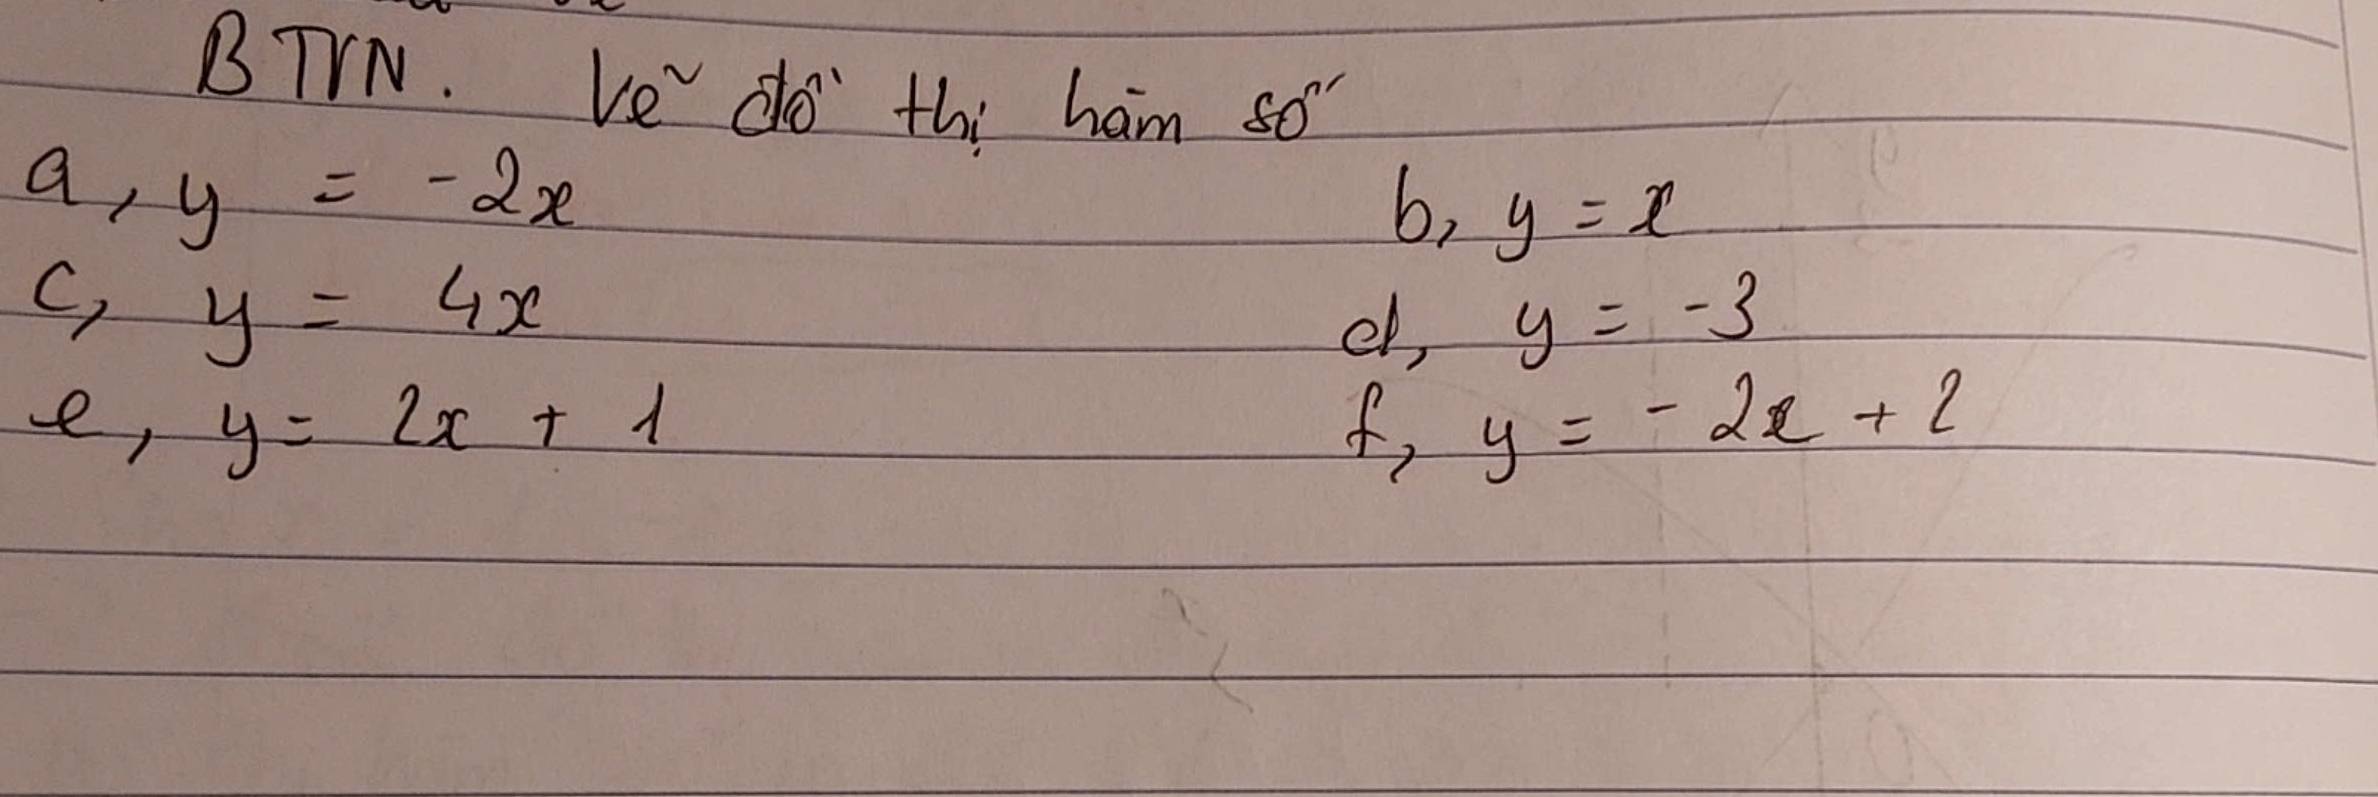 BTVN. Vẽ đồ thị hàm số
a, y = -2x b, y = x
c, y = 4x d, y = -3
e, y = 2x + 1 f, y = -2x + 2